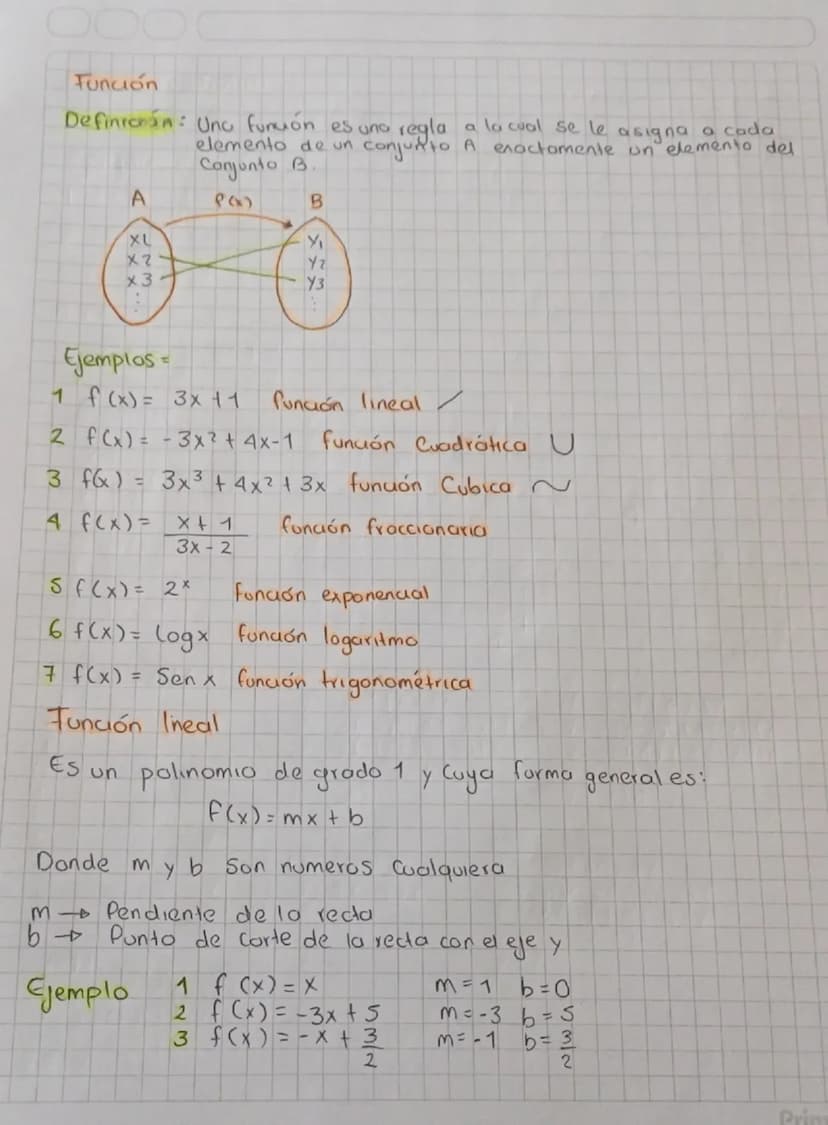 Función
Definición: Una función es una regla a la cual se le asigna a cada
elemento de un conjunto A exactamente un elemento del
Conjunto B.
A f(x) B
x1 y1
x2 y2
x3 y3
Ejemplos=
1 f(x) = 3x+1 función lineal
2 f(x) = -3x² + 4x-1 función Cuadrática
3 f(x) = 3x³ + 4x² + 3x función Cubica
4 f(x) = \frac{x+1}{3x-2} función fraccionaria
5 f(x) = 2ˣ función exponencial
6 f(x) = Logx función logaritmo
7 f(x) = Sen x función trigonométrica
Función lineal
Es un polinomio de grado 1 y cuya forma general es:
f(x) = mx + b
Donde m y b son numeros cualquiera
m → Pendiente de la recta
b → Punto de corte de la recta con el eje y
Ejemplo 1 f(x) = x m = 1 b = 0
2 f(x) = -3x + 5 m = -3 b = 5
3 f(x) = -x + \frac{3}{2} m = -1 b = \frac{3}{2}